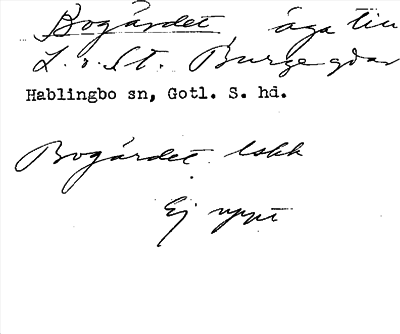 Bogårdet, äga till
L. o. St. Burge gdar
Hablingbo sn, Gotl. S. hd.
Bogårdet lskk
Ej uppt